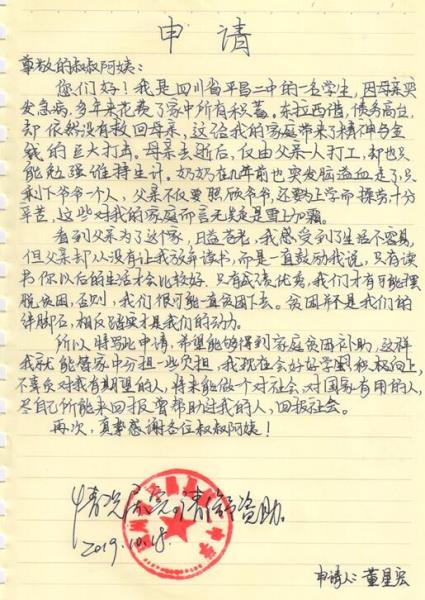 申请
尊敬的叔叔阿姨:
您们好!我是四川省平昌二中的一名学生,因母亲突
发急病,多年来花费了家中所有积蓄。东拉西借,债务高台,
却依然没有救回母亲,这给我的家庭带来了精神与金
钱的巨大打击。母亲去逝后,仅由父亲一人打工,却也只
能勉强维持生计。奶奶在几年前也突发脑溢血走了,只
剩下爷爷一个人,父亲不仅要照顾爷爷,还要为上学而操劳,十分
辛苦,这些对我的家庭而言无疑是雪上加霜。
看到父亲为了这个家,日益苍老,我感受到了生活不容易,
但父亲却从没有让我放弃读书,而是一直鼓励我说,只有读
书你以后的生活才会比较好,只有成绩优秀,我们才有可能摆
脱贫困,否则,我们很可能一直贫困下去。贫困并不是我们的
绊脚石,相反踏实才是我们的动力。
所以特写此申请,希望能够得到家庭贫困补助,这样
我就能替家中分担一些负担,我现在会好好学习积极向上,
不辜负对我有期望的人,将来能做个对社会、对国家有用的人,
尽自己所能来回报曾帮助过我的人,回报社会。
再次,真挚感谢各位叔叔阿姨!
情况属实,请给予资助。
2019.10.18.
申请人:董星宏